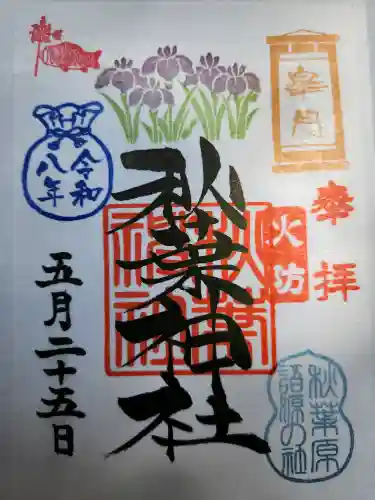 奉拝
皐月
火防
秋葉神社
秋葉神社
秋葉原
語源の社
令和
八年
五月二十五日